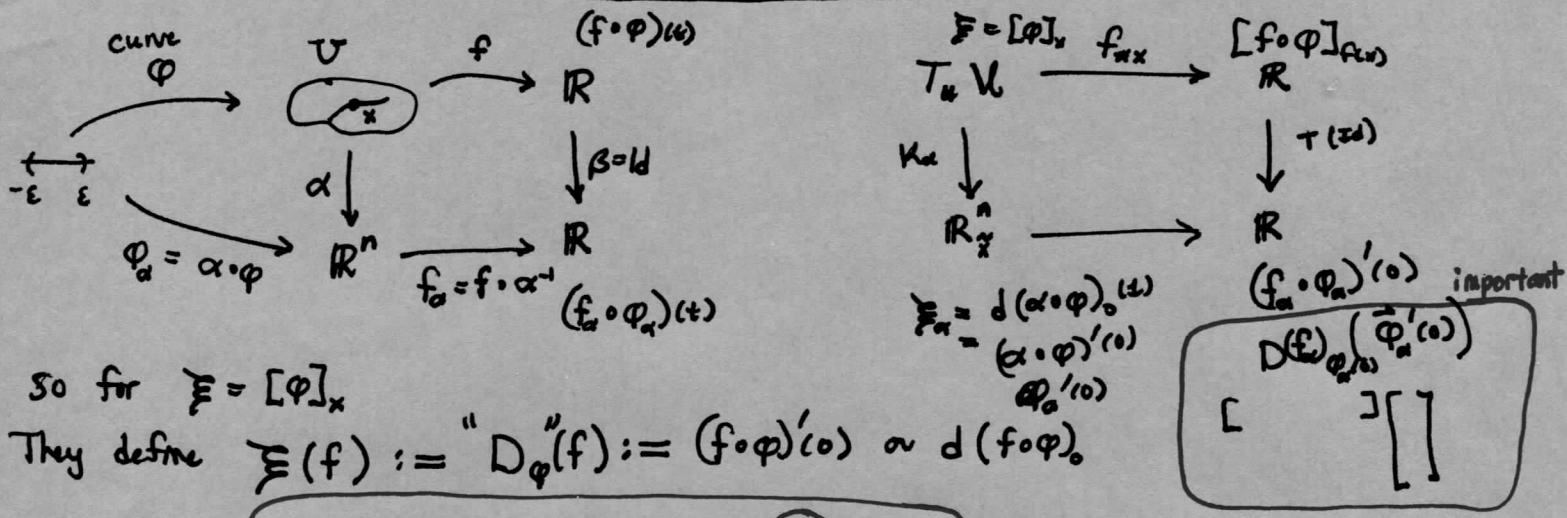 curve
φ
U
f
(f∘φ)(t)
x
ℝ
-ε ε
α
β=Id
φ_α = α∘φ
ℝⁿ
f_α = f∘α⁻¹
ℝ
(f_α∘φ_α)(t)
ξ = [φ]ₓ
f_*x
[f∘φ]_f(x)
ℝ
T(Id)
ℝ
ξ_α = d(α∘φ)₀(1)
= (α∘φ)'(0)
φ_α'(0)
(f_α∘φ_α)'(0)
important
D(f_α)_φ_α(0) (φ⃗_α'(0))
[ ] [ ]
so for ξ = [φ]ₓ
They define ξ(f) := "D_φ"(f) := (f∘φ)'(0) ~ d(f∘φ)₀